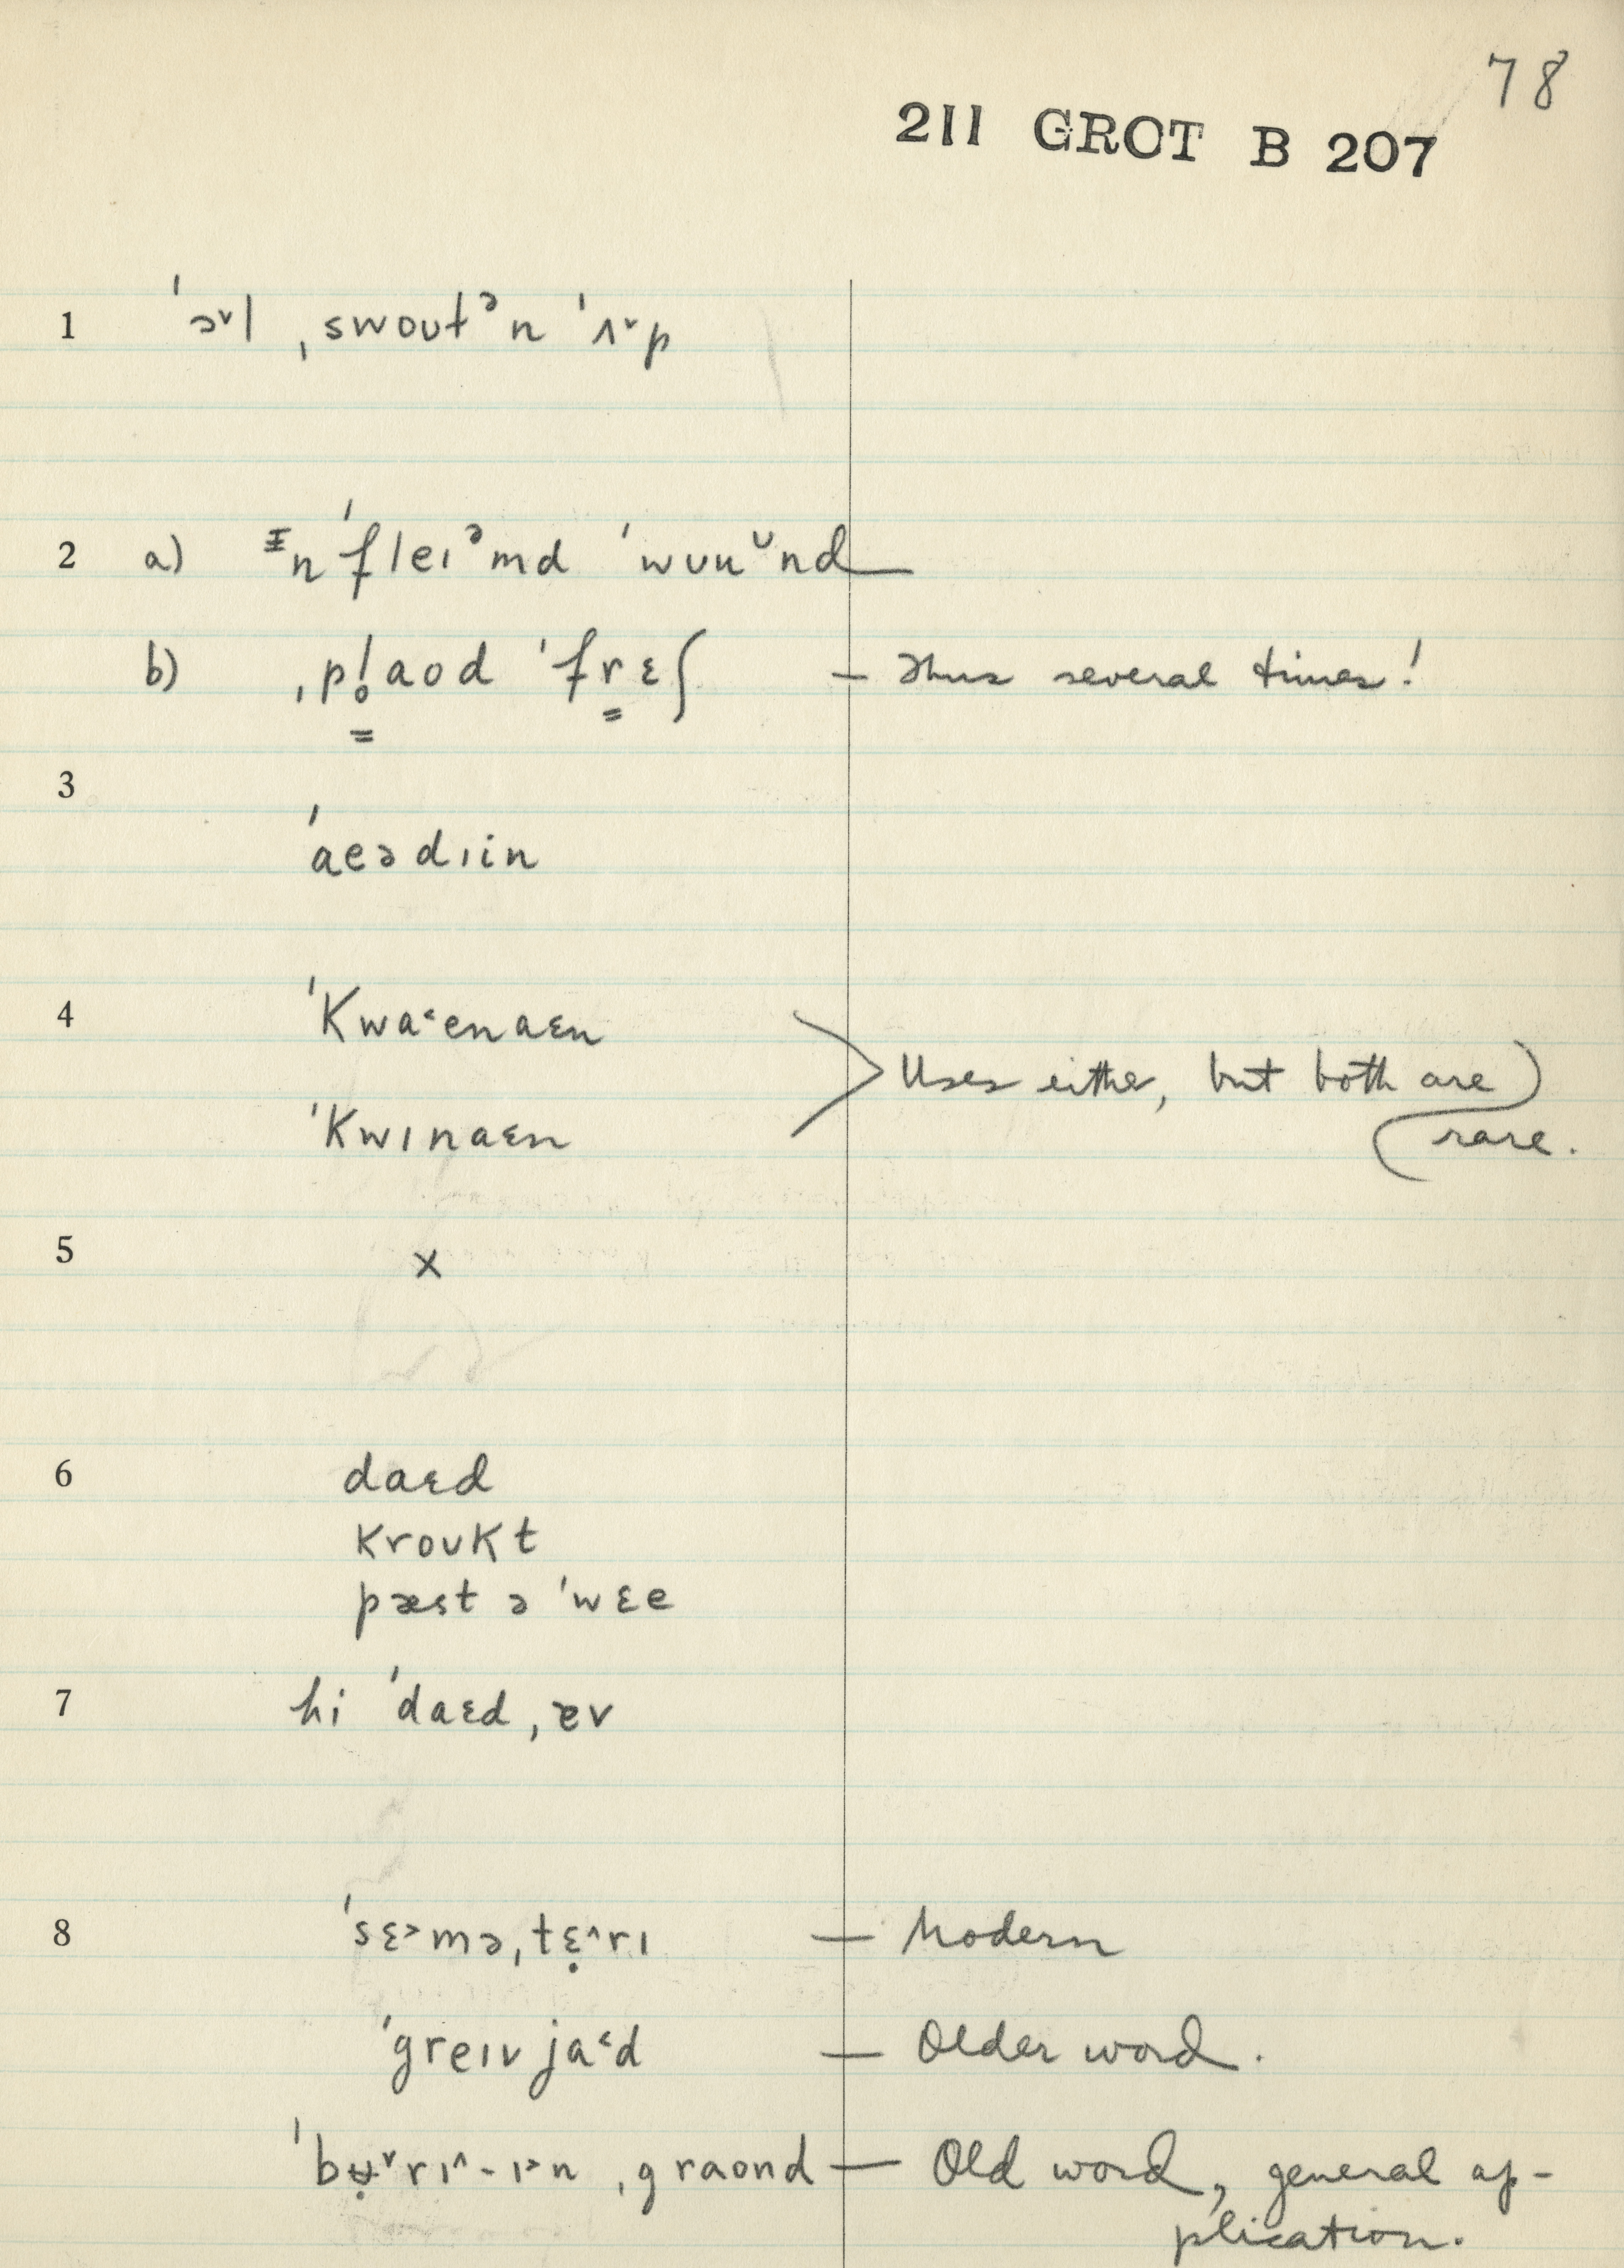 78
211 GROT B 207
1 ˈɔ˅l ˌswoutᵊn ˈʌ˅p
2 a) ᵻn ˈfleɪᵊmd ˈwuuᶷnd —
b) ˌpl̥aod ˈfrɛʃ — Thus several times!
3
ˈaeədɪin
4 ˈKwa˂enaɛn
Uses either, but both are
ˈKwɪnaɛn
rare.
5 x
6 daɛd
KrouKt
pæst ə ˈwɛe
7 hi ˈdaɛd ˌɐv
8 ˈsɛ˃məˌtɛ̣˄rɪ — Modern
ˈgreɪv ja˂d — Older word.
ˈbʉ̣˅rɪ˄-ɪ˃n ˌgraond — Old word, general ap-
plication.